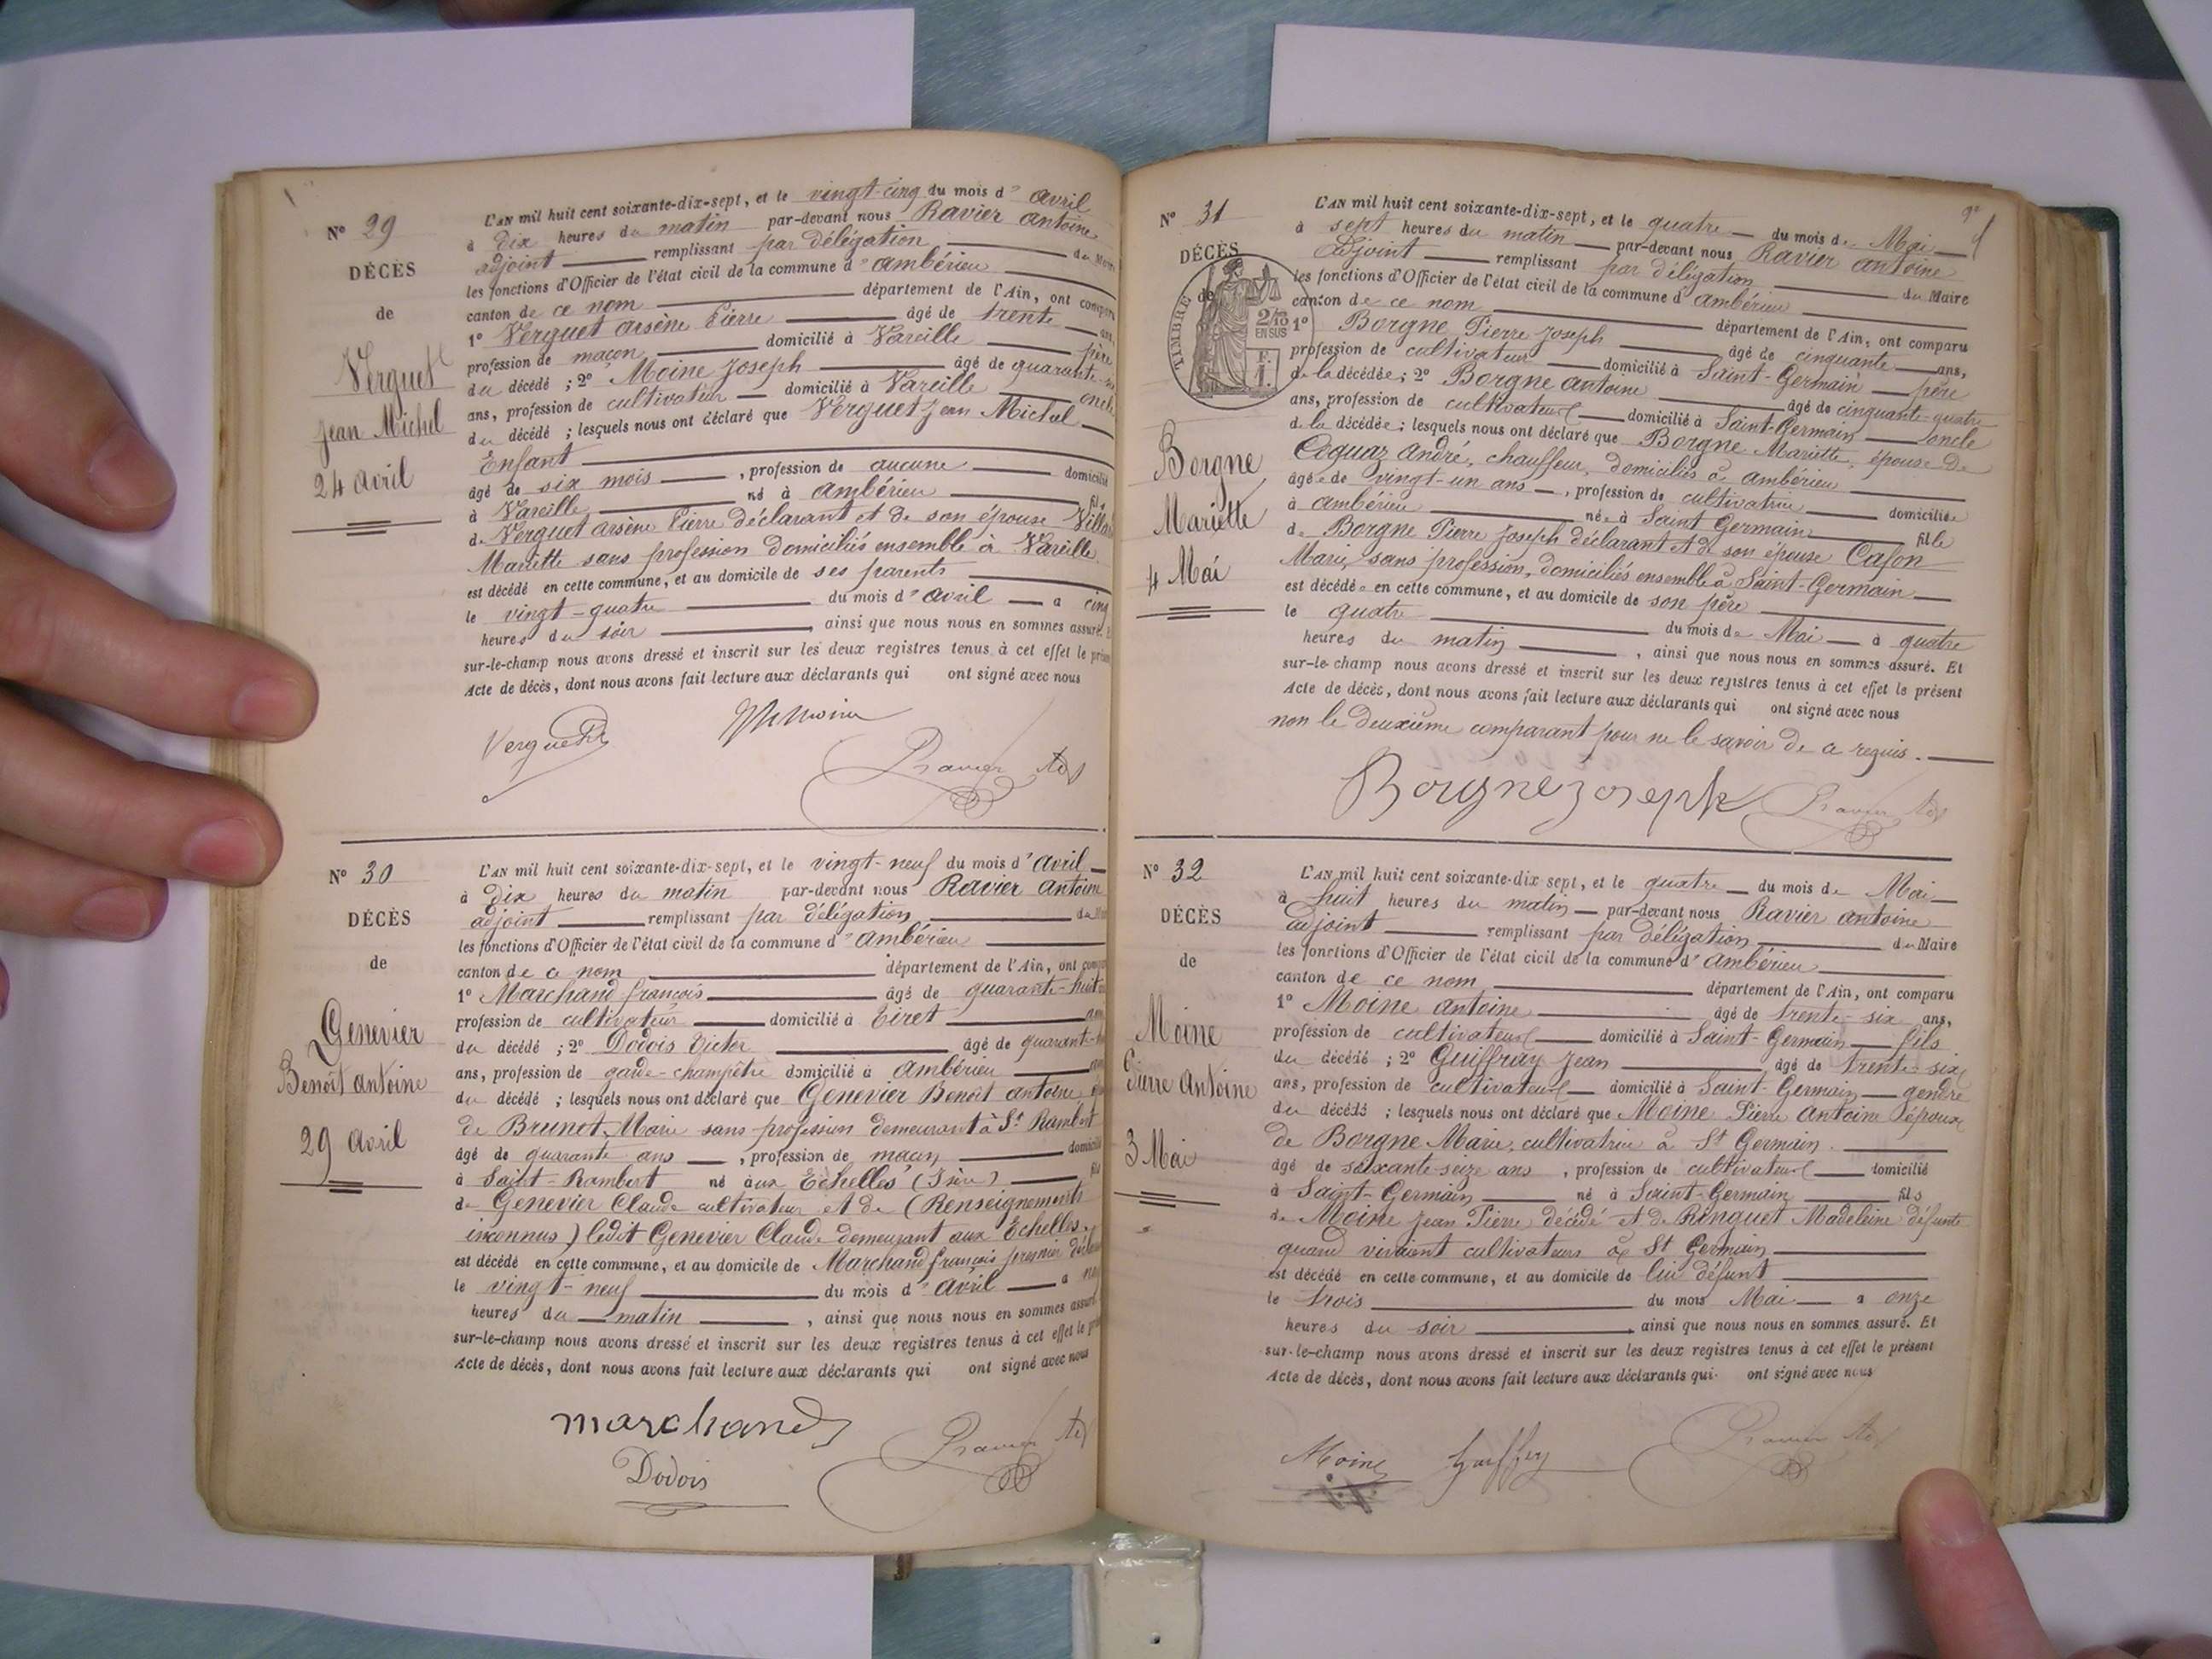 N° 29
DÉCÈS
de
Verguet
Jean Michel
24 avril
L'AN mil huit cent soixante-dix-sept, et le vingt-cinq du mois d'avril
à dix heures du matin par-devant nous Ravier antoine
adjoint remplissant par délégation du Maire
les fonctions d'Officier de l'état civil de la commune d'ambérieu
canton de ce nom département de l'Ain, ont comparu
1° Verguet arsène Pierre âgé de trente ans,
profession de maçon domicilié à Vareille père
du décédé ; 2° Moine Joseph âgé de quarante
ans, profession de cultivateur domicilié à Vareille oncle
du décédé ; lesquels nous ont déclaré que Verguet Jean Michel
Enfant
âgé de six mois, profession de aucune domicilié
à Vareille né à ambérieu fils
de Verguet arsène Pierre déclarant et de son épouse
Mariette sans profession domiciliés ensemble à Vareille
est décédé en cette commune, et au domicile de ses parents
le vingt-quatre du mois d'avril à cinq
heures du soir, ainsi que nous nous en sommes assuré. Et
sur-le-champ nous avons dressé et inscrit sur les deux registres tenus à cet effet le présent
Acte de décès, dont nous avons fait lecture aux déclarants qui ont signé avec nous
Verguet JhMoine
Ravier Adj
N° 30
DÉCÈS
de
Genevier
Benoît antoine
29 avril
L'AN mil huit cent soixante-dix-sept, et le vingt-neuf du mois d'avril
à dix heures du matin par-devant nous Ravier antoine
adjoint remplissant par délégation du
les fonctions d'Officier de l'état civil de la commune d'ambérieu
canton de ce nom département de l'Ain, ont
1° Marchand françois âgé de quarante-huit
profession de cultivateur domicilié à Tiret ami
du décédé ; 2° Dodois Victor âgé de
ans, profession de garde-champêtre domicilié à ambérieu
du décédé ; lesquels nous ont déclaré que Genevier Benoît antoine
de Brunet Marie sans profession demeurant à St Rambert
âgé de quarante ans, profession de maçon domicilié
à Saint-Rambert né aux Echelles (Isère) fils
de Genevier Claude cultivateur et de (Renseignements
inconnus) ledit Genevier Claude demeurant aux Echelles.
est décédé en cette commune, et au domicile de Marchand françois premier
le vingt-neuf du mois d'avril à
heures du matin, ainsi que nous nous en sommes assuré
sur-le-champ nous avons dressé et inscrit sur les deux registres tenus à cet effet le
Acte de décès, dont nous avons fait lecture aux déclarants qui ont signé avec nous
marchand
Dodois
Ravier Adj
N° 31
DÉCÈS
de
TIMBRE
2/10
EN SUS
F.
1.
Borgne
Mariette
4 Mai
L'AN mil huit cent soixante-dix-sept, et le quatre du mois de Mai
à sept heures du matin par-devant nous Ravier antoine
adjoint remplissant par délégation du Maire
les fonctions d'Officier de l'état civil de la commune d'ambérieu
canton de ce nom département de l'Ain, ont comparu
1° Borgne Pierre Joseph âgé de cinquante ans,
profession de cultivateur domicilié à Saint-Germain père
de la décédée ; 2° Borgne antoine âgé de cinquante-quatre
ans, profession de cultivateur domicilié à Saint-Germain oncle
de la décédée ; lesquels nous ont déclaré que Borgne Mariette, épouse de
Coquaz André, chauffeur, domiciliés à ambérieu
âgée de vingt-un ans, profession de cultivatrice domiciliée
à ambérieu née à Saint Germain fille
de Borgne Pierre Joseph déclarant et de son épouse Cafon
Marie, sans profession, domiciliés ensemble à Saint-Germain
est décédée en cette commune, et au domicile de son père
le quatre du mois de Mai à quatre
heures du matin, ainsi que nous nous en sommes assuré. Et
sur-le-champ nous avons dressé et inscrit sur les deux registres tenus à cet effet le présent
Acte de décès, dont nous avons fait lecture aux déclarants qui ont signé avec nous
non le deuxième comparant pour ne le savoir de ce requis.
Borgne Joseph Ravier Adj
N° 32
DÉCÈS
de
Moine
Pierre Antoine
3 Mai
L'AN mil huit cent soixante-dix-sept, et le quatre du mois de Mai
à huit heures du matin par-devant nous Ravier antoine
adjoint remplissant par délégation du Maire
les fonctions d'Officier de l'état civil de la commune d'ambérieu
canton de ce nom département de l'Ain, ont comparu
1° Moine antoine âgé de trente-six ans,
profession de cultivateur domicilié à Saint-Germain fils
du décédé ; 2° Guiffray Jean âgé de trente-six
ans, profession de cultivateur domicilié à Saint-Germain gendre
du décédé ; lesquels nous ont déclaré que Moine Pierre Antoine époux
de Borgne Marie, cultivatrice à St Germain.
âgé de soixante-seize ans, profession de cultivateur domicilié
à Saint-Germain né à Saint-Germain fils
de Moine Jean Pierre décédé et de Ringuet Madeleine défunte
quand vivaient cultivateurs à St Germain
est décédé en cette commune, et au domicile de lui défunt
le trois du mois Mai à onze
heures du soir, ainsi que nous nous en sommes assuré. Et
sur-le-champ nous avons dressé et inscrit sur les deux registres tenus à cet effet le présent
Acte de décès, dont nous avons fait lecture aux déclarants qui ont signé avec nous
Moine Guiffrey
Ravier Adj